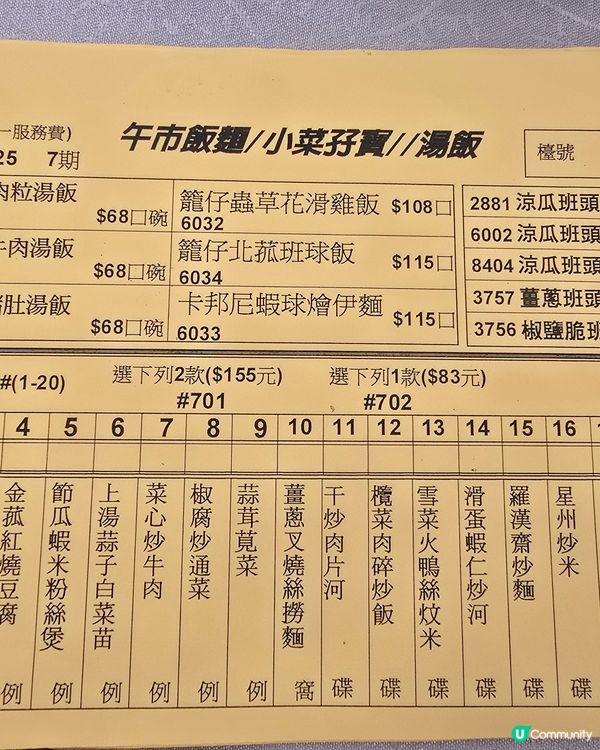 一服務費)
25 7期
午市飯麵/小菜孖寶//湯飯
檯號
肉粒湯飯
$68口碗
牛肉湯飯
$68口碗
肚湯飯
$68口碗
籠仔蟲草花滑雞飯 $108口
6032
籠仔北菰班球飯 $115口
6034
卡邦尼蝦球燴伊麵 $115口
6033
2881 涼瓜班頭
6002 涼瓜班頭
8404 涼瓜班
3757 薑蔥班頭
3756 椒鹽脆班
#(1-20)
選下列2款($155元)
#701
選下列1款($83元)
#702
4 5 6 7 8 9 10 11 12 13 14 15 16
金菰紅燒豆腐 例
節瓜蝦米粉絲煲 例
上湯蒜子白菜苗 例
菜心炒牛肉 例
椒腐炒通菜 例
蒜茸莧菜 例
薑蔥叉燒絲撈麵 窩
干炒肉片河 碟
欖菜肉碎炒飯 碟
雪菜火鴨絲炆米 碟
滑蛋蝦仁炒河 碟
羅漢齋炒麵 碟
星州炒米 碟
U Community